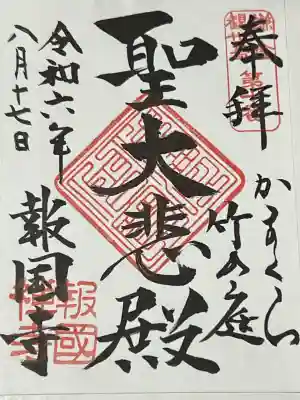 奉拝
かまくら
竹の庭
聖大悲殿
令和六年
八月十七日
報国寺
報國禅寺